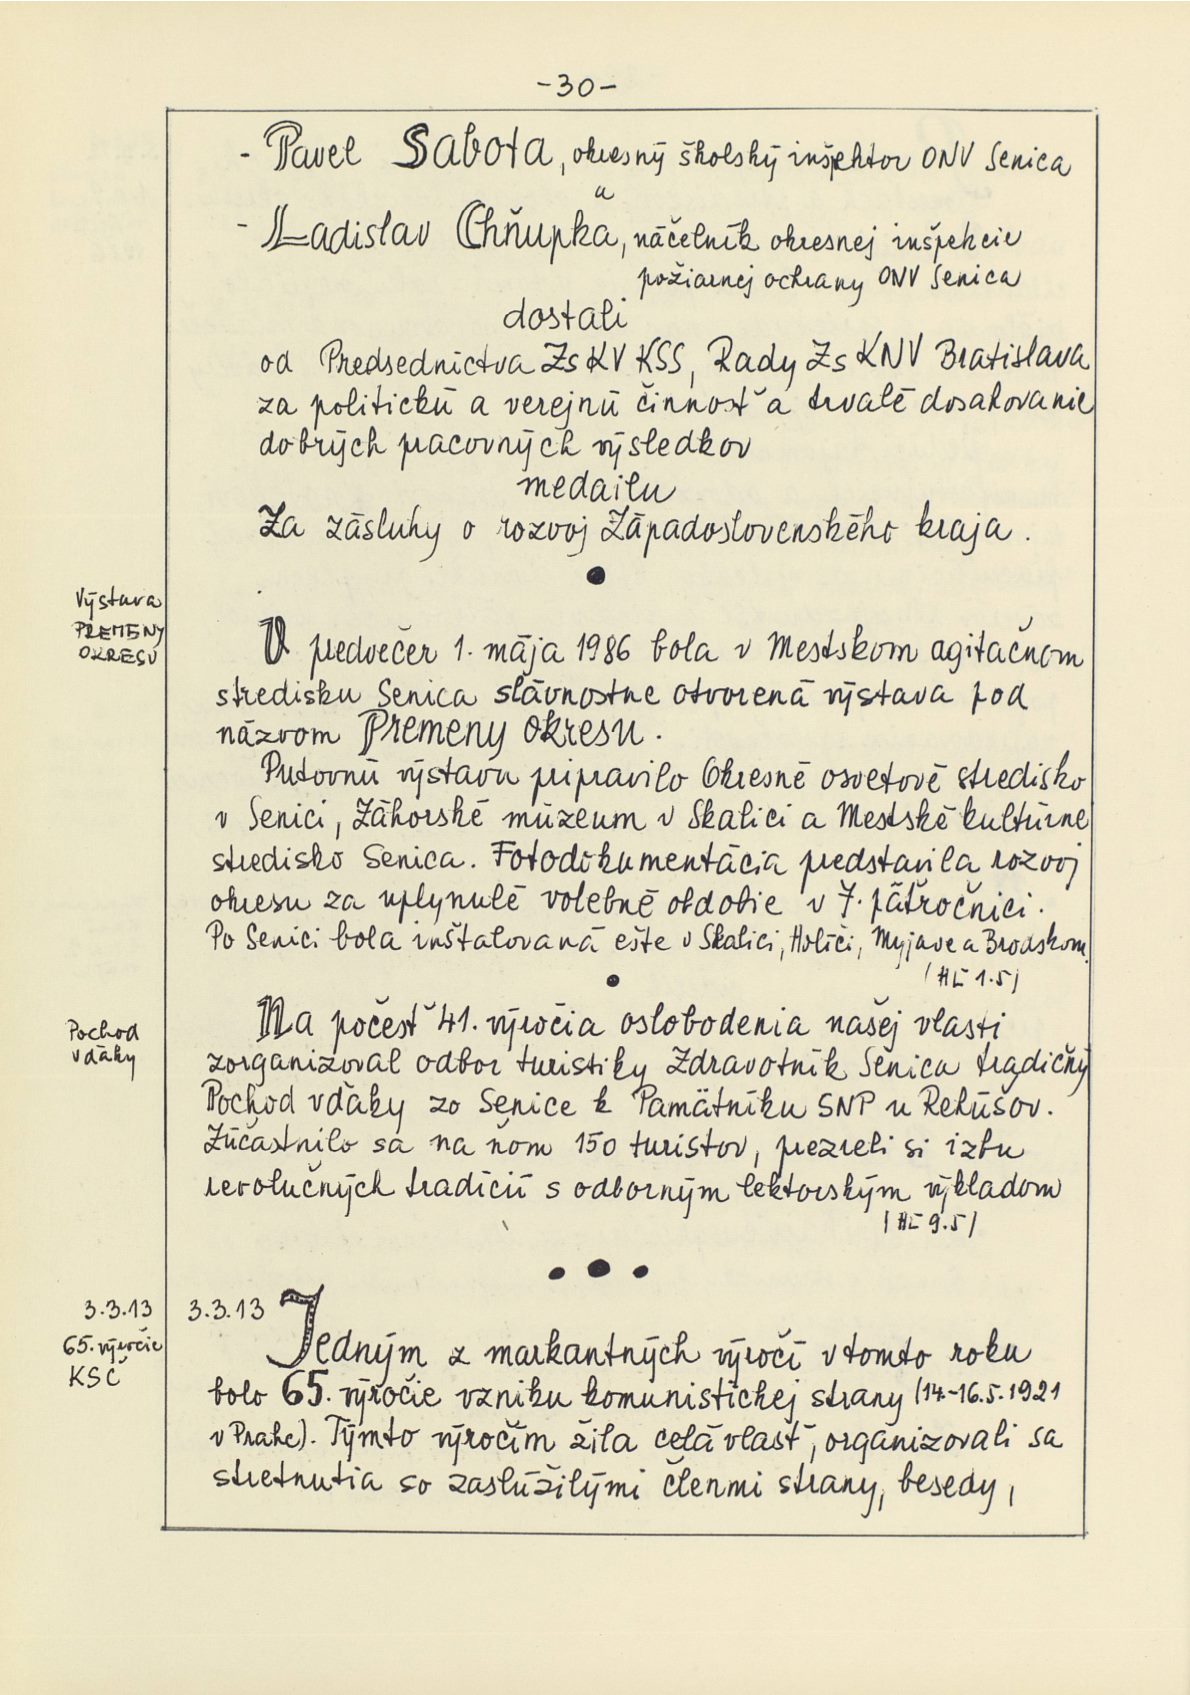 -30-
- Pavel Sabota, okresný školský inšpektor ONV Senica
a
- Ladislav Chňupka, náčelník okresnej inšpekcie
požiarnej ochrany ONV Senica
dostali
od Predsedníctva ZsKV KSS, Rady ZsKNV Bratislava
za politickú a verejnú činnosť a trvalé dosahovanie
dobrých pracovných výsledkov
medailu
Za zásluhy o rozvoj Západoslovenského kraja.
Výstava
PREMENY
OKRESU
V predvečer 1. mája 1986 bola v Mestskom agitačnom
stredisku Senica slávnostne otvorená výstava pod
názvom Premeny okresu.
Putovnú výstavu pripravilo Okresné osvetové stredisko
v Senici, Záhorské múzeum v Skalici a Mestské kultúrne
stredisko Senica. Fotodokumentácia predstavila rozvoj
okresu za uplynulé volebné obdobie v 7. päťročnici.
Po Senici bola inštalovaná ešte v Skalici, Holíči, Myjave a Brodskom.
(HL 1.5)
Pochod
vďaky
Na počesť 41. výročia oslobodenia našej vlasti
zorganizoval odbor turistiky Zdravotník Senica tradičný
Pochod vďaky zo Senice k Pamätníku SNP u Rehúšov.
Zúčastnilo sa na ňom 150 turistov, prezreli si izbu
revolučných tradícií s odborným lektorským výkladom
(HL 9.5)
3.3.13
65. výročie
KSČ
3.3.13 Jedným z markantných výročí v tomto roku
bolo 65. výročie vzniku komunistickej strany (14-16.5.1921
v Prahe). Týmto výročím žila celá vlasť, organizovali sa
stretnutia so zaslúžilými členmi strany, besedy,